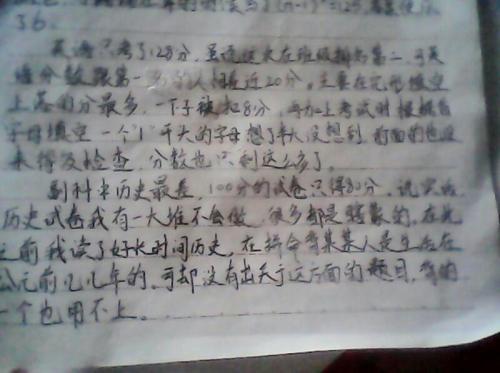 36。
英语只考了128分，虽说这次在班级排名第二，可英
语分数跟第一名的人相差近20分，主要在完形填空
上丢的分最多，一下子被扣8分，再加上考试时根据首
字母填空一个“i”开头的字母想了半天没想到，前面的也没
来得及检查，分数也只剩这么多了。
副科中历史最差，100分的试卷只得80分，说实话
历史试卷我有一大堆不会做，很多都是猜蒙的，在
之前我读了好长时间历史，在拼命背某某人是生在
公元前几几年的，可却没有出关于这方面的题目，背的
一个也用不上。